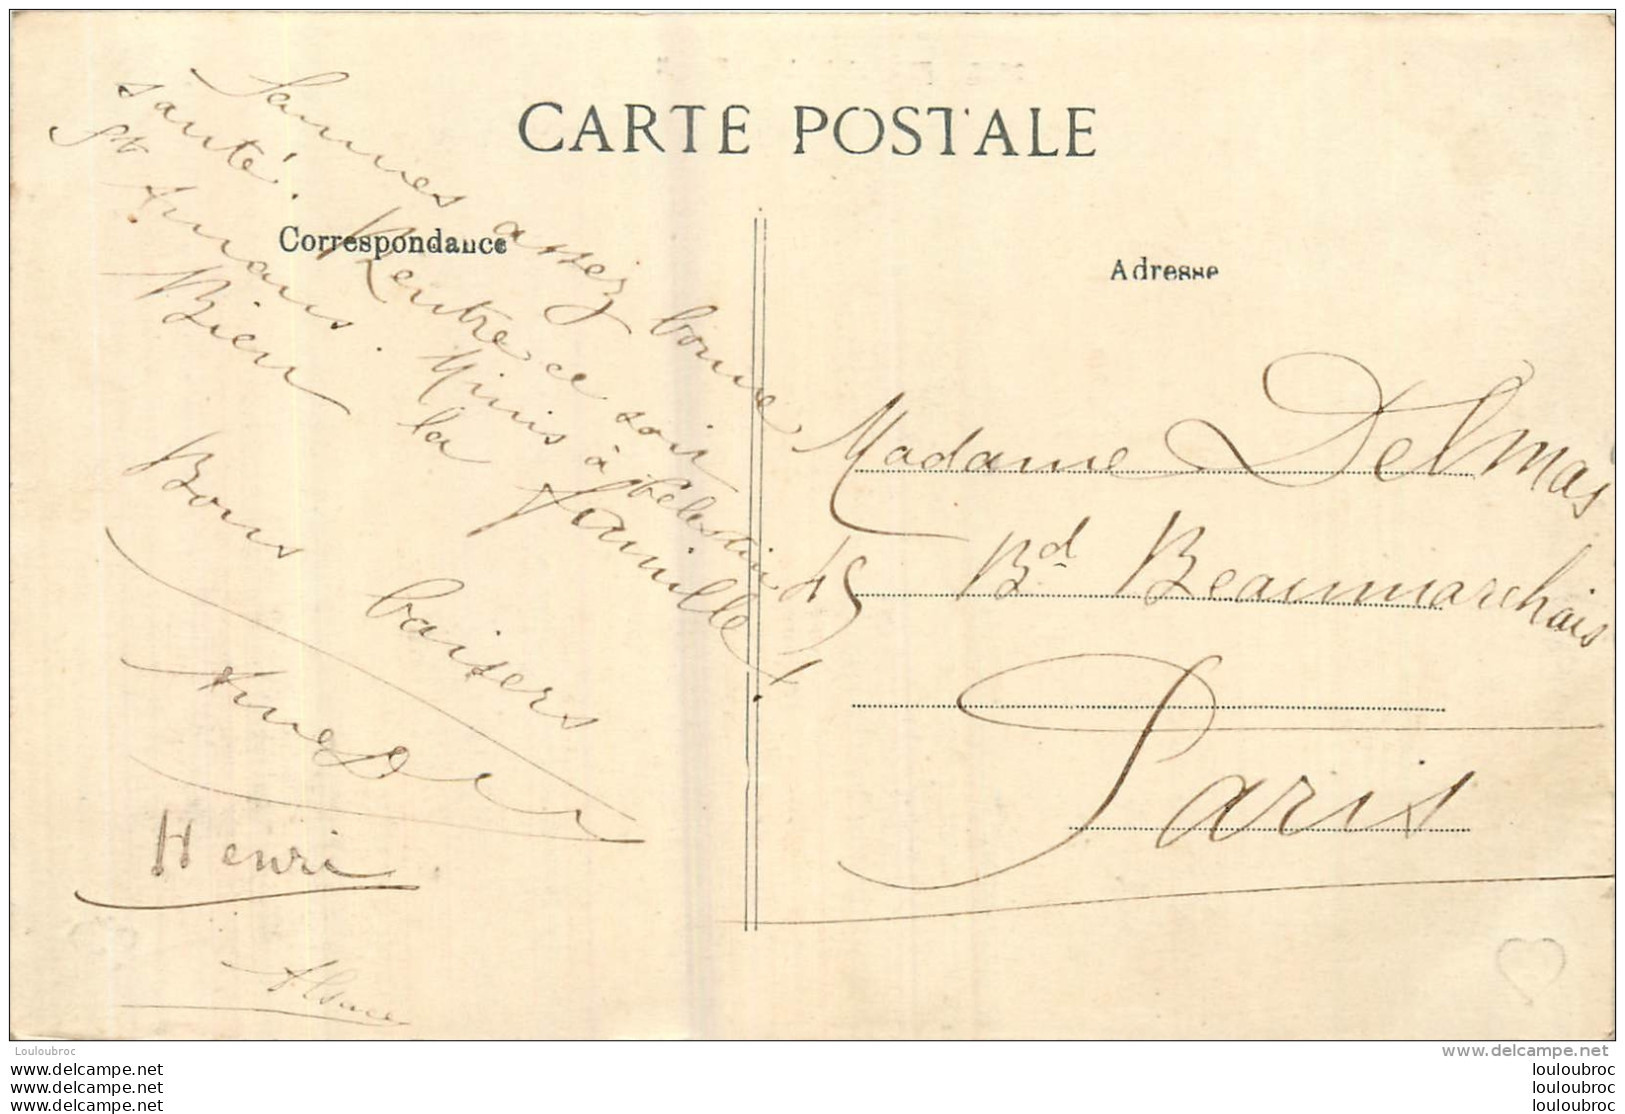 CARTE POSTALE
Correspondance
Adresse
Sommes assez bonne
santé. Rentre ce soir
St Amans. Mimis à Célestin
Bien la famille
Bons baisers
Henri
Alsace
Madame Delmas
45 Bd Beaumarchais
Paris
Louloubroc
www.delcampe.net
louloubroc
louloubroc
louloubroc
louloubroc
louloubroc
louloubroc